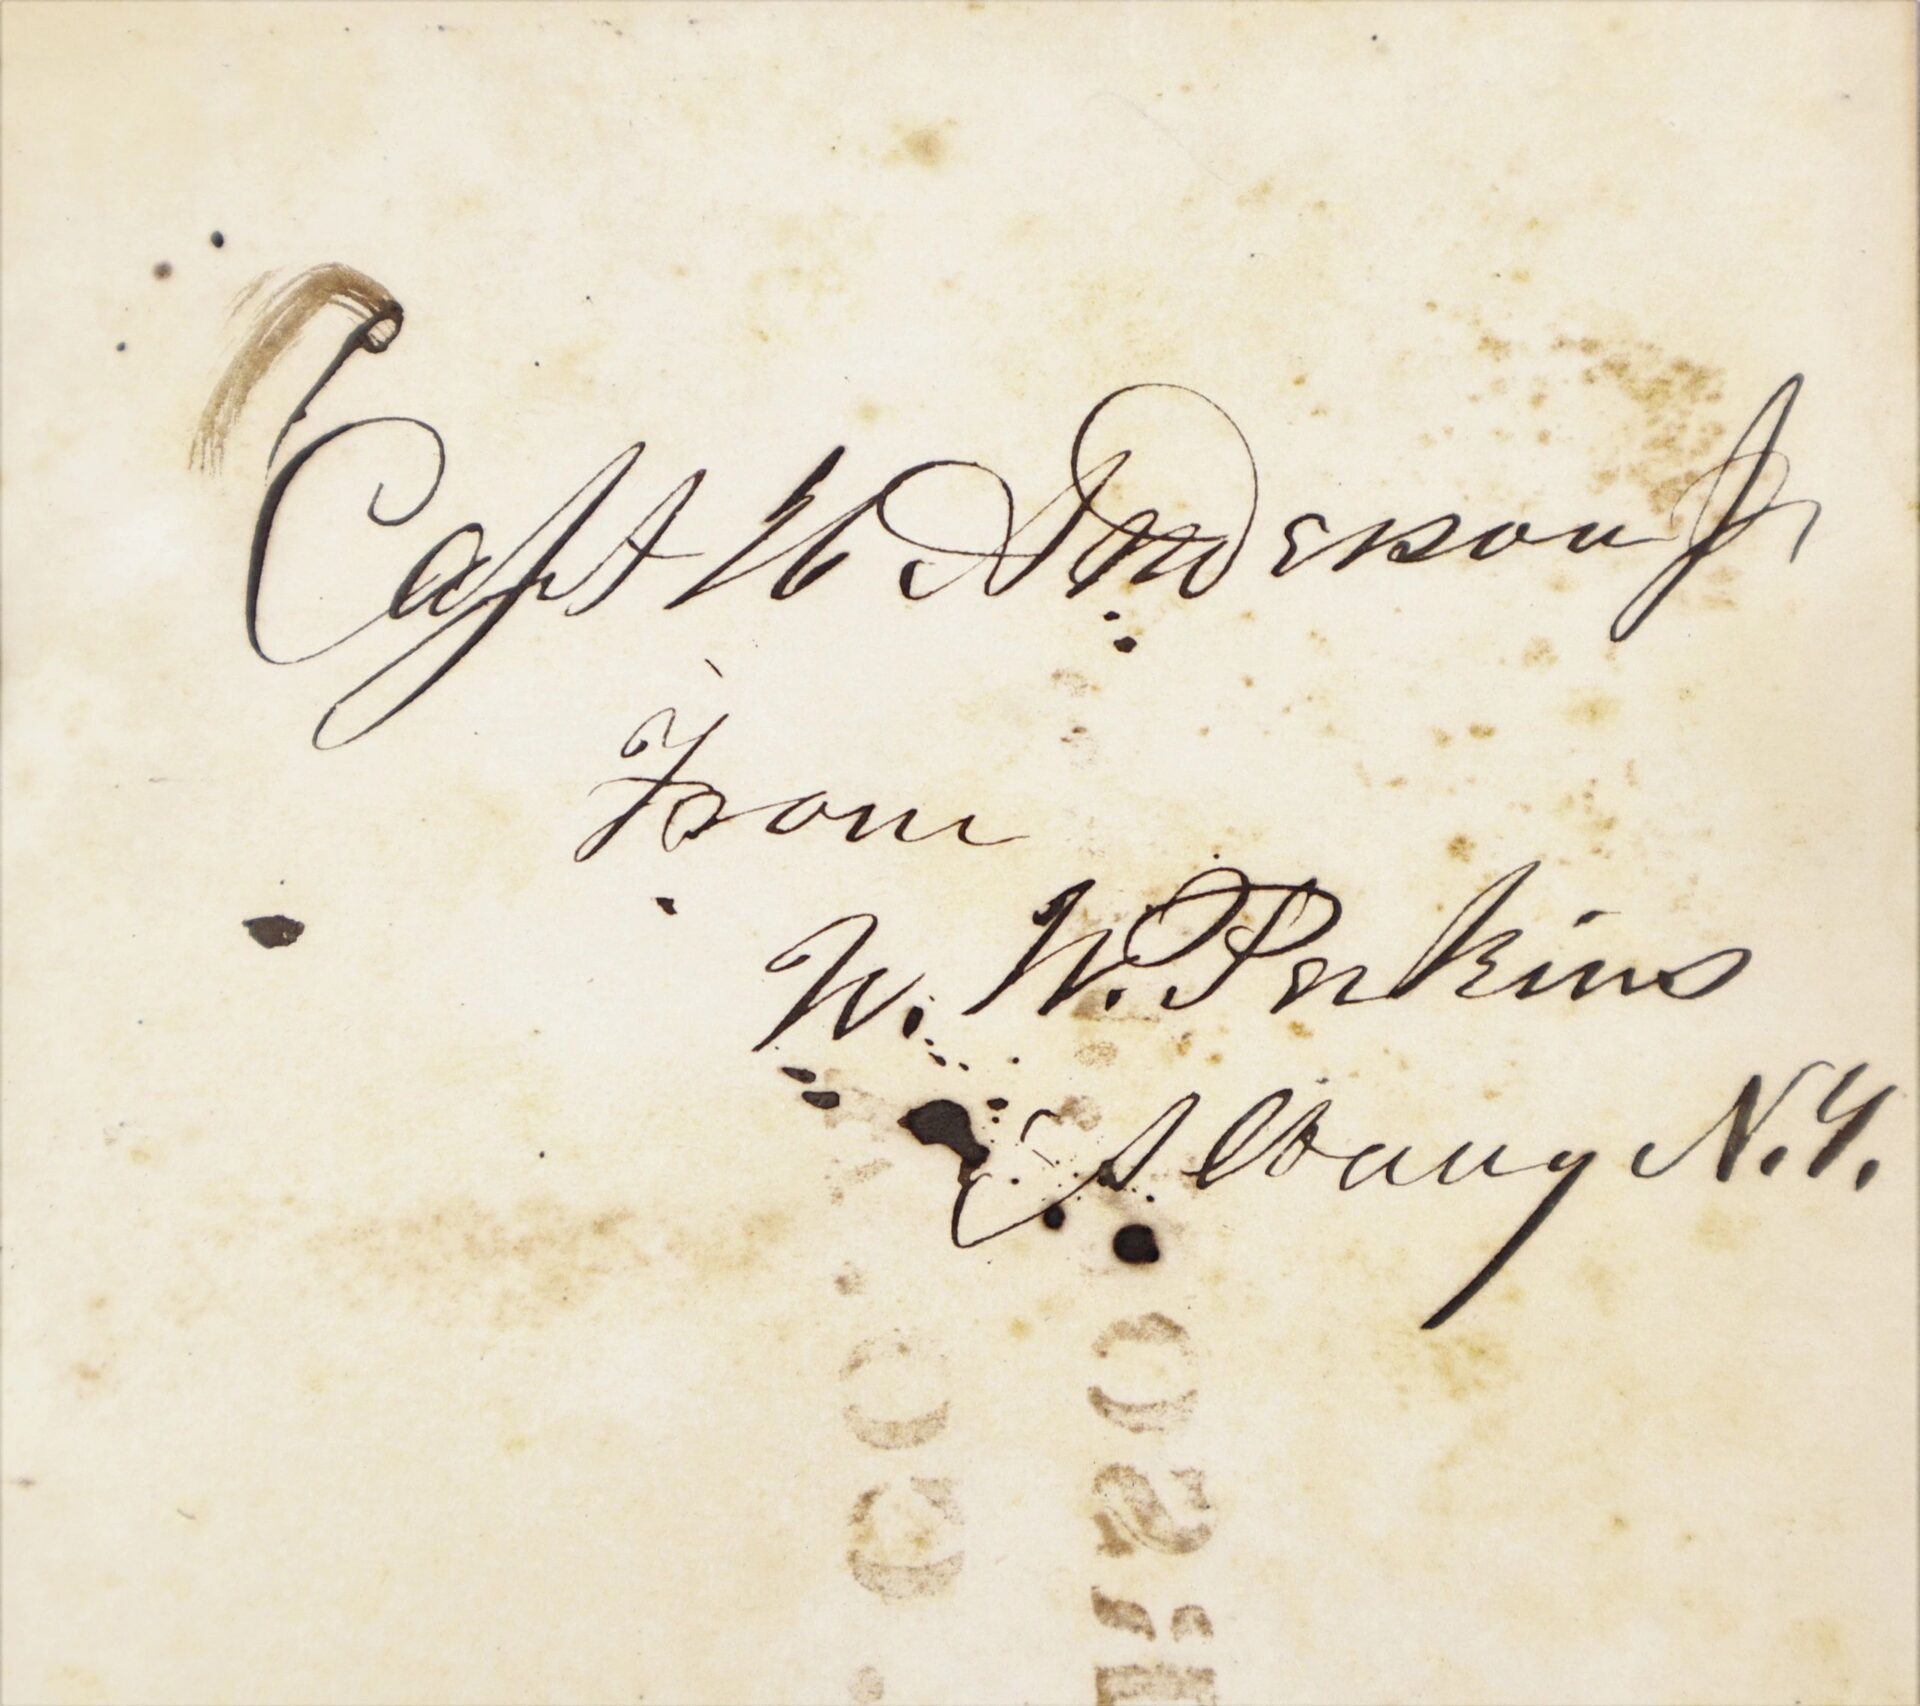 Capt W Anderson Jr
From
W. W. Perkins
Albany N.Y.